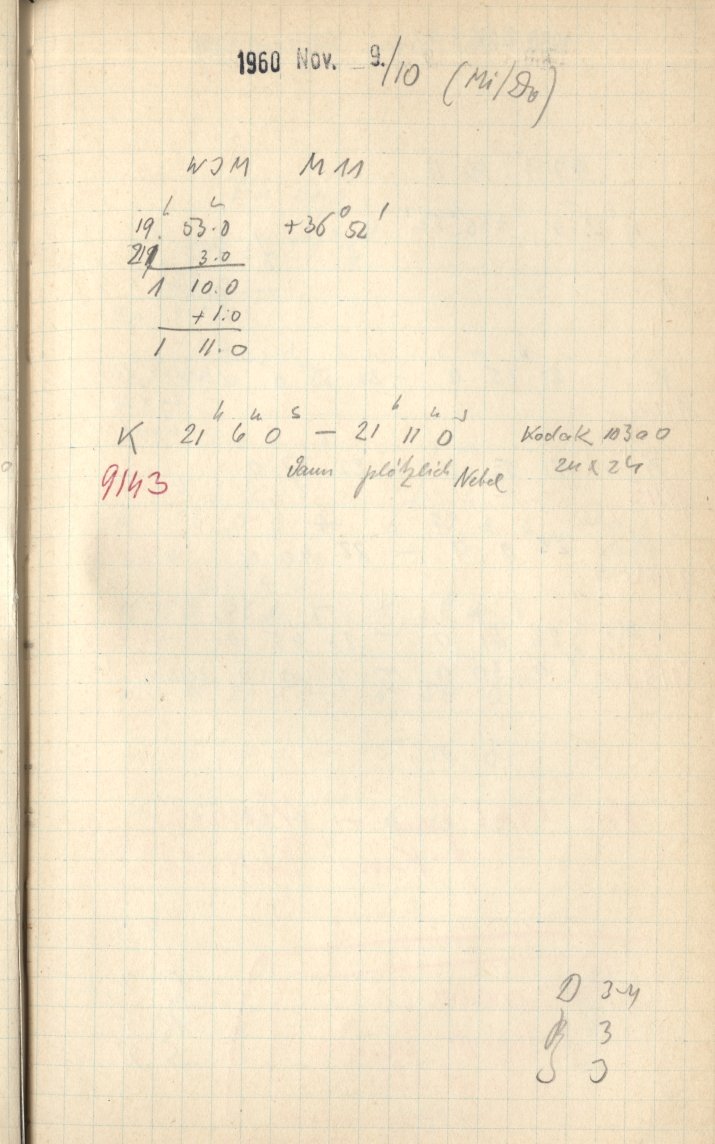 1960 Nov. 9./10 (Mi/Do)
M 11
19h 53.0 +36° 52'
21 3.0
1 10.0
+1.0
1 11.0
K 21h 6m 0s — 21h 11m 0s Kodak 103a0
9143 Dann plötzlich Nebel 24x24
D 3-4
R 3
S 3